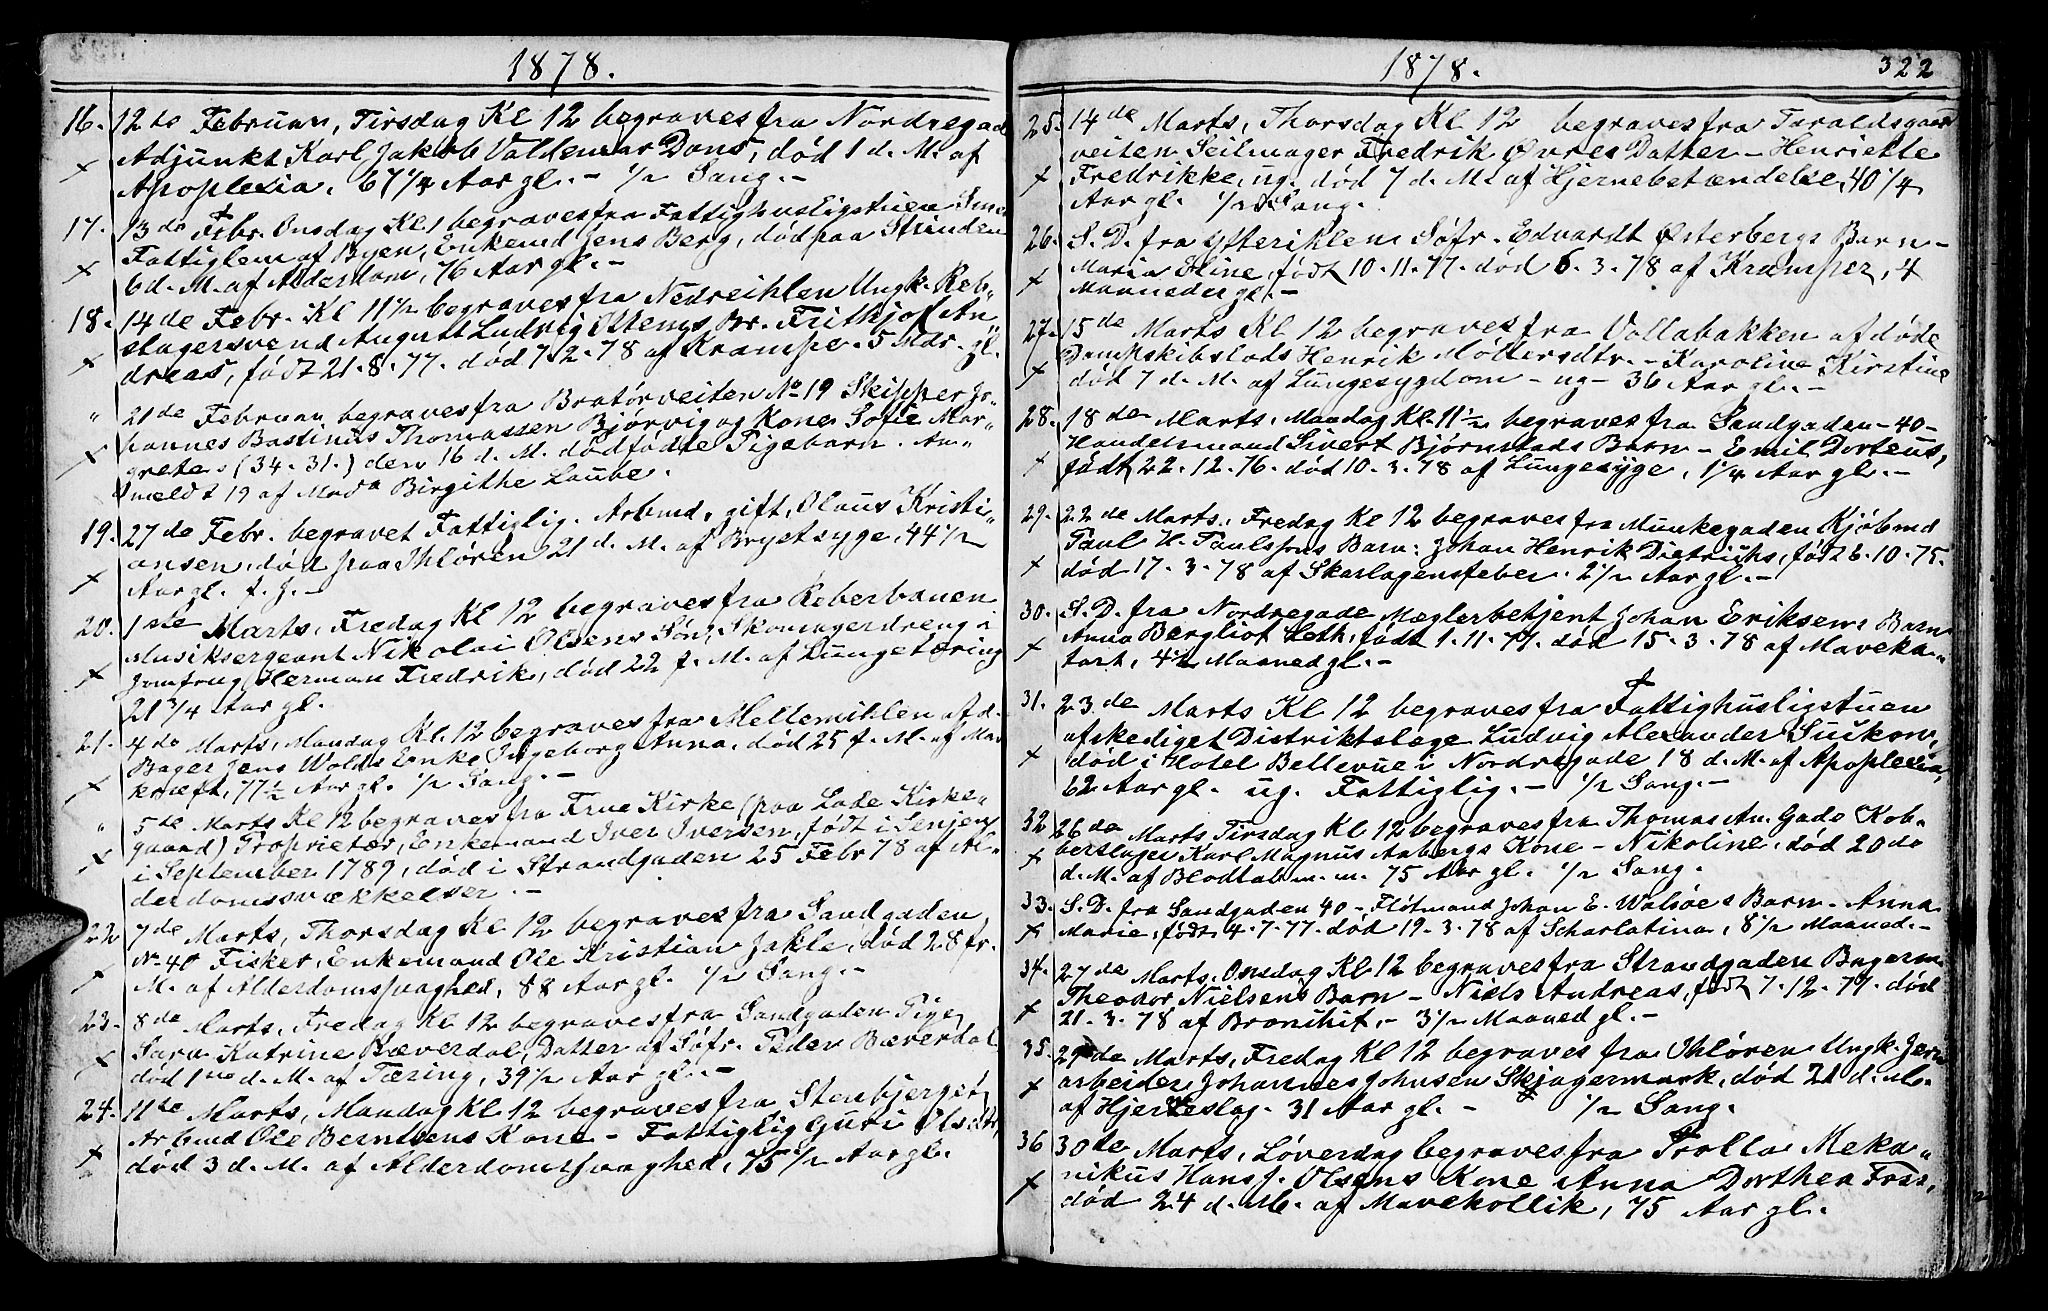 1878.
16. 12te Februar, Tirsdag Kl 12 begraves fra Nordregade
Adjunkt Karl Jakob Valdemar Dons, død 1 d. M. af
Apoplexia. 67 1/4 Aar gl. – 1/2 Sang. –
17. 13de Febr. Onsdag Kl 1 begraves fra Fattighusligstuen
Fattiglem af Byen, Enkemd Jens Berg, død paa Strinden
6 d. M. af Alderdom, 76 Aar gl. –
18. 14de Febr. Kl 11 1/2 begraves fra Nedreihlen Ungk. Reb„
slagersvend August Ludvig Ottems Br. Frithjof An„
dreas, født 21-8-77. død 7-2-78 af Krampe. 5 Mdr. gl.
„ 21de Februar begraves fra Bratørveiten No 19 Skipper Jo„
hannes Bastinus Thomassen Bjørvig og Kone Sofie Mar„
grete (34-31.) den 16 d. M. dødfødte Pigebarn. An„
meldt 19 af Mada Birgithe Laube.
19. 27de Febr. begravet Fattiglig. Arbmd, gift, Olaus Kristi„
ansen, død paa Ihløren 21 d. M. af Brystsyge, 44 1/2
Aar gl. f. J. –
20. 1ste Marts, Fredag Kl 12 begraves fra Reberbanen
Musiksergeant Nikolai Olsens Søn, Skomagerdreng i
Herman Fredrik, død 22 f. M. af Lungetæring
21 3/4 Aar gl.
21. 4de Marts, Mandag Kl. 12 begraves fra Mellemihlen afd.
Bager Jens Wolds Enke Ingeborg Anna, død 25 f. M. af Mar
kræft, 77 1/2 Aar gl. 1/2 Sang. –
„ 5de Marts Kl 12 begraves fra Frue Kirke (paa Lade Kirke„
gaard) Proprietær, Enkemand Iver Iversen, født i Senjen
i September 1789, død i Strandgaden 25 Febr 78 af Al„
derdomssvækkelser. –
22 7de Marts, Thorsdag Kl 12 begraves fra Sandgaden
No 40 Fisker, Enkemand Ole Kristian Jakle, død 28 fr.
M. af Alderdomssvaghed, 88 Aar gl. 1/2 Sang. –
23. 8de Marts, Fredag Kl 12 begraves fra Sandgaden Pige
Sara Katrine Bæverdal, Datter af Søfr. Peder Bæverdal
død 1ste d. M. af Tæring, 39 1/2 Aar gl. –
24. 11te Marts, Mandag Kl 12 begraves fra Stenbjerget
Arbmd Ole Berntsens Kone – Fattiglig Guri Olsdtr,
død 3 d. M. af Alderdomssvaghed, 75 1/2 Aar gl.
1878. 322
25. 14de Marts, Thorsdag Kl 12 begraves fra Taraldsgaard
veiten Seilmager Fredrik Øvres Datter – Henriette
Fredrikke, ug. død 7 d. M. af Hjernebetændelse, 40 1/4
Aar gl. 1/2 Sang.
26. S. D. fra Ytterihlen Søfr. Edvardt Østerbergs Barn –
Maria Eline, født 10-11-77. død 6-3-78 af Kramper, 4
Maaneder gl. –
27. 15de Marts Kl 12 begraves fra Vollabakken afdøde
Dampskibslods Henrik Møllersdtr. – Karoline Kirstine
død 7 d. M. af Lungesygdom – ug – 36 Aar gl. –
28. 18de Marts, Mandag Kl. 11 1/2 begraves fra Sandgaden – 40 –
Handelsmand Sivert Bjørnstads Barn – Emil Dorteus,
født 22-12-76. død 10-3-78 af Lungesyge, 1 1/4 Aar gl. –
29. 22de Marts, Fredag Kl 12 begraves fra Munkegaden Kjøbmd
Paul H. Paulssens Barn: Johan Henrik Dietrichs, født 6-10-75.
død 17-3-78 af Skarlagensfeber. 2 1/2 Aar gl. –
30. S. D. fra Nordregade Mæglerbetjent Johan Eriksens Barn
Anna Bergliot Leth, født 1-11-77. død 15-3-78 af Maveka„
tarr, 4 1/2 Maaned gl. –
31. 23de Marts Kl 12 begraves fra Fattighusligstuen
afskediget Distriktslæge Ludvig Alexander
død i Hotel Bellevue i Nordregade 18 d. M. af Apoplexia,
62 Aar gl. ug. Fattiglig. – 1/2 Sang. –
32 26de Marts Tirsdag Kl 12 begraves fra Thomas An. Gade Kob„
berslager Karl Magnus Aabergs Kone – Nikoline, død 20de
d. M. af Blodtab m. m. 75 Aar gl. 1/2 Sang.
33. S. D. fra Sandgaden 40 – Fløtmand Johan E. Walsøes Barn – Anna
Marie, født 4-7-77. død 19-3-78 af Scharlatina, 8 1/2 Maaned. –
34. 27de Marts, Onsdag Kl 12 begraves fra Strandgaden Bagerm
Theodor Nielsens Barn – Niels Andreas, født 7-12-77. død
21-3-78 af Bronchit, – 3 1/2 Maaned gl. –
35. 29de Marts, Fredag Kl 12 begraves fra Ihløren Ungk. Jern
arbeider Johannes Johnsen Skjagermark, død 21 d. M.
af Hjerteslag. 31 Aar gl. – 1/2 Sang.
36 30de Marts, Løverdag begraves fra Trolla Meka„
nikus Hans J. Olsens Kone Anna Dorthea
død 24 d. M. af Mavekollik, 75 Aar gl.